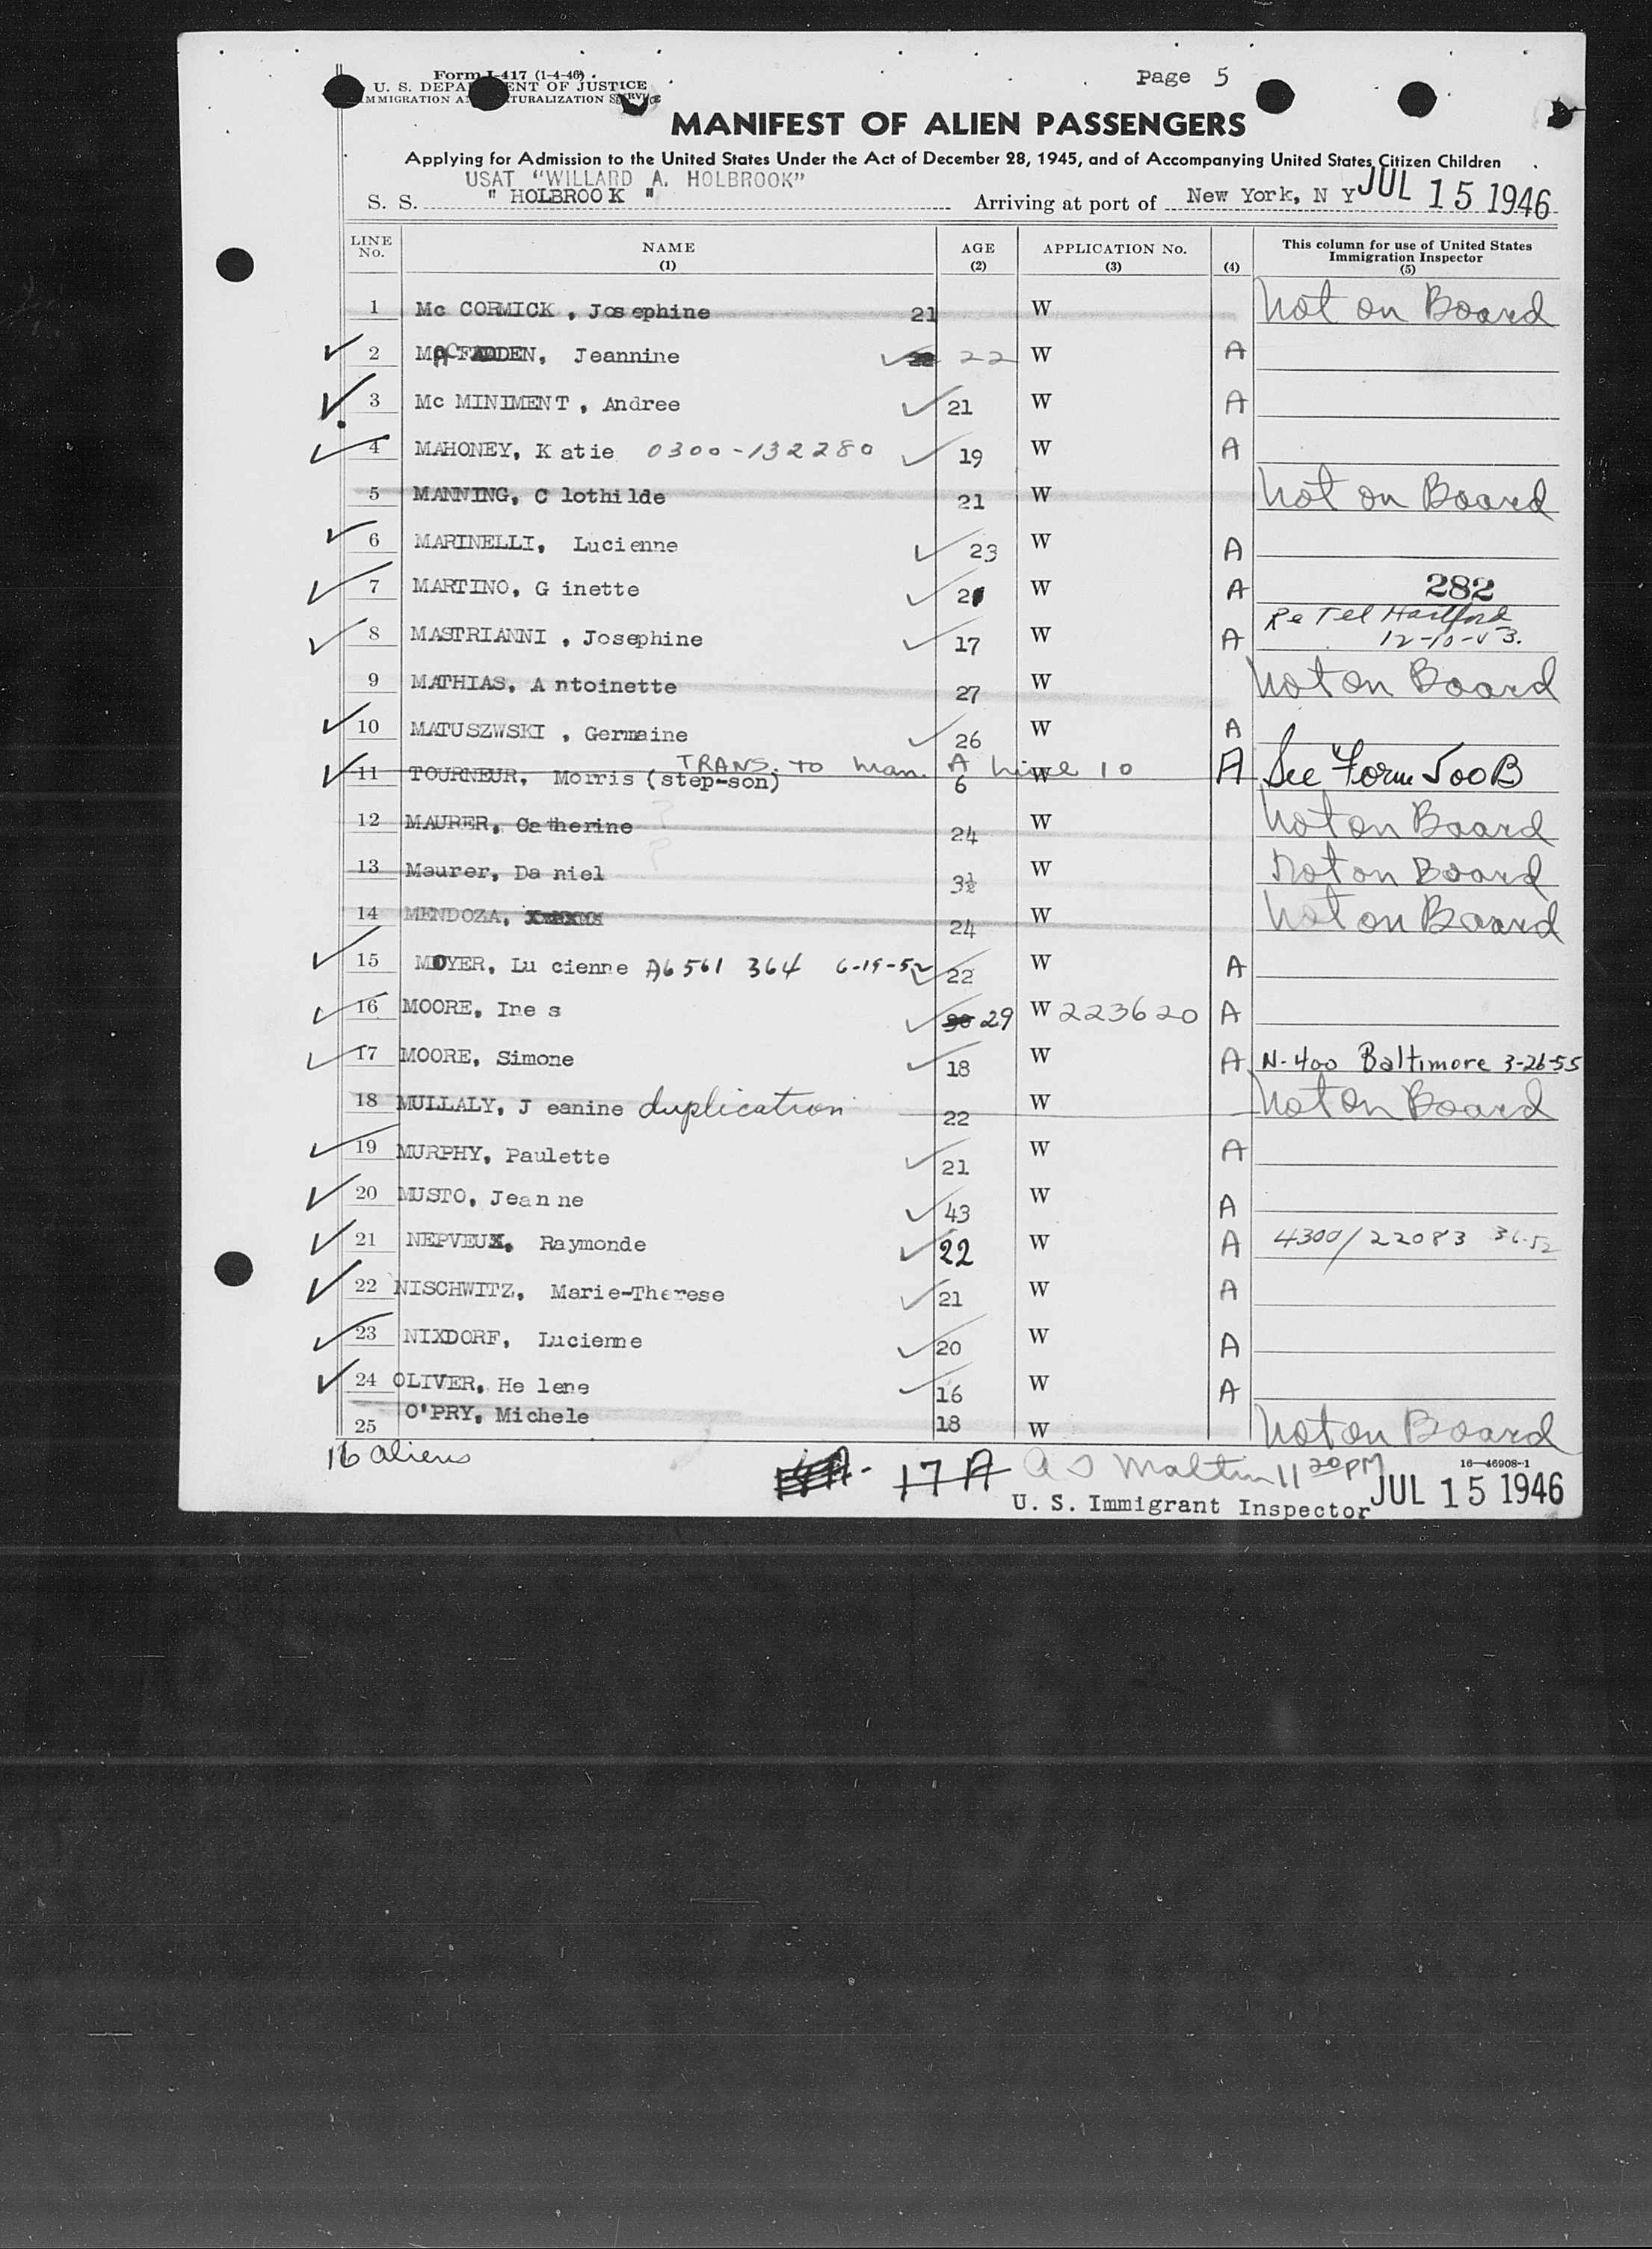 Form I-417 (1-4-46)
Page 5
U. S. DEPARTMENT OF JUSTICE
IMMIGRATION AND NATURALIZATION SERVICE
MANIFEST OF ALIEN PASSENGERS
Applying for Admission to the United States Under the Act of December 28, 1945, and of Accompanying United States Citizen Children
USAT "WILLARD A. HOLBROOK"
S. S. " HOLBROOK " Arriving at port of New York, N Y JUL 15 1946
LINE No. NAME (1) AGE (2) APPLICATION No. (3) (4) This column for use of United States Immigration Inspector (5)
1 Mc CORMICK, Josephine 21 W Not on Board
2 McFADDEN, Jeannine 22 W A
3 Mc MINIMENT, Andree 21 W A
4 MAHONEY, Katie 0300-132280 19 W A
5 MANNING, Clothilde 21 W Not on Board
6 MARINELLI, Lucienne 23 W A
7 MARTINO, Ginette 21 W A 282
8 MASTRIANNI, Josephine 17 W A Re Tel Hartford 12-10-53.
9 MATHIAS, Antoinette 27 W Not on Board
10 MATUSZWSKI, Germaine 26 W A
TRANS. to Man. A line 10
11 TOURNEUR, Morris (step-son) 6 W A See Form 500B
12 MAURER, Catherine ? 24 W Not on Board
13 Maurer, Daniel ? 3½ W Not on Board
14 MENDOZA, 24 W Not on Board
15 MOYER, Lucienne A6561 364 6-19-52 22 W A
16 MOORE, Ines 30 29 W 223620 A
17 MOORE, Simone 18 W A N-400 Baltimore 3-26-55
18 MULLALY, Jeanine duplication 22 W Not on Board
19 MURPHY, Paulette 21 W A
20 MUSTO, Jeanne 43 W A
21 NEPVEUX, Raymonde 22 W A 4300/22083 3-6-52
22 NISCHWITZ, Marie-Therese 21 W A
23 NIXDORF, Lucienne 20 W A
24 OLIVER, Helene 16 W A
25 O'PRY, Michele 18 W Not on Board
16 aliens
17 A 11 20 PM
16—46908-1
U. S. Immigrant Inspector JUL 15 1946